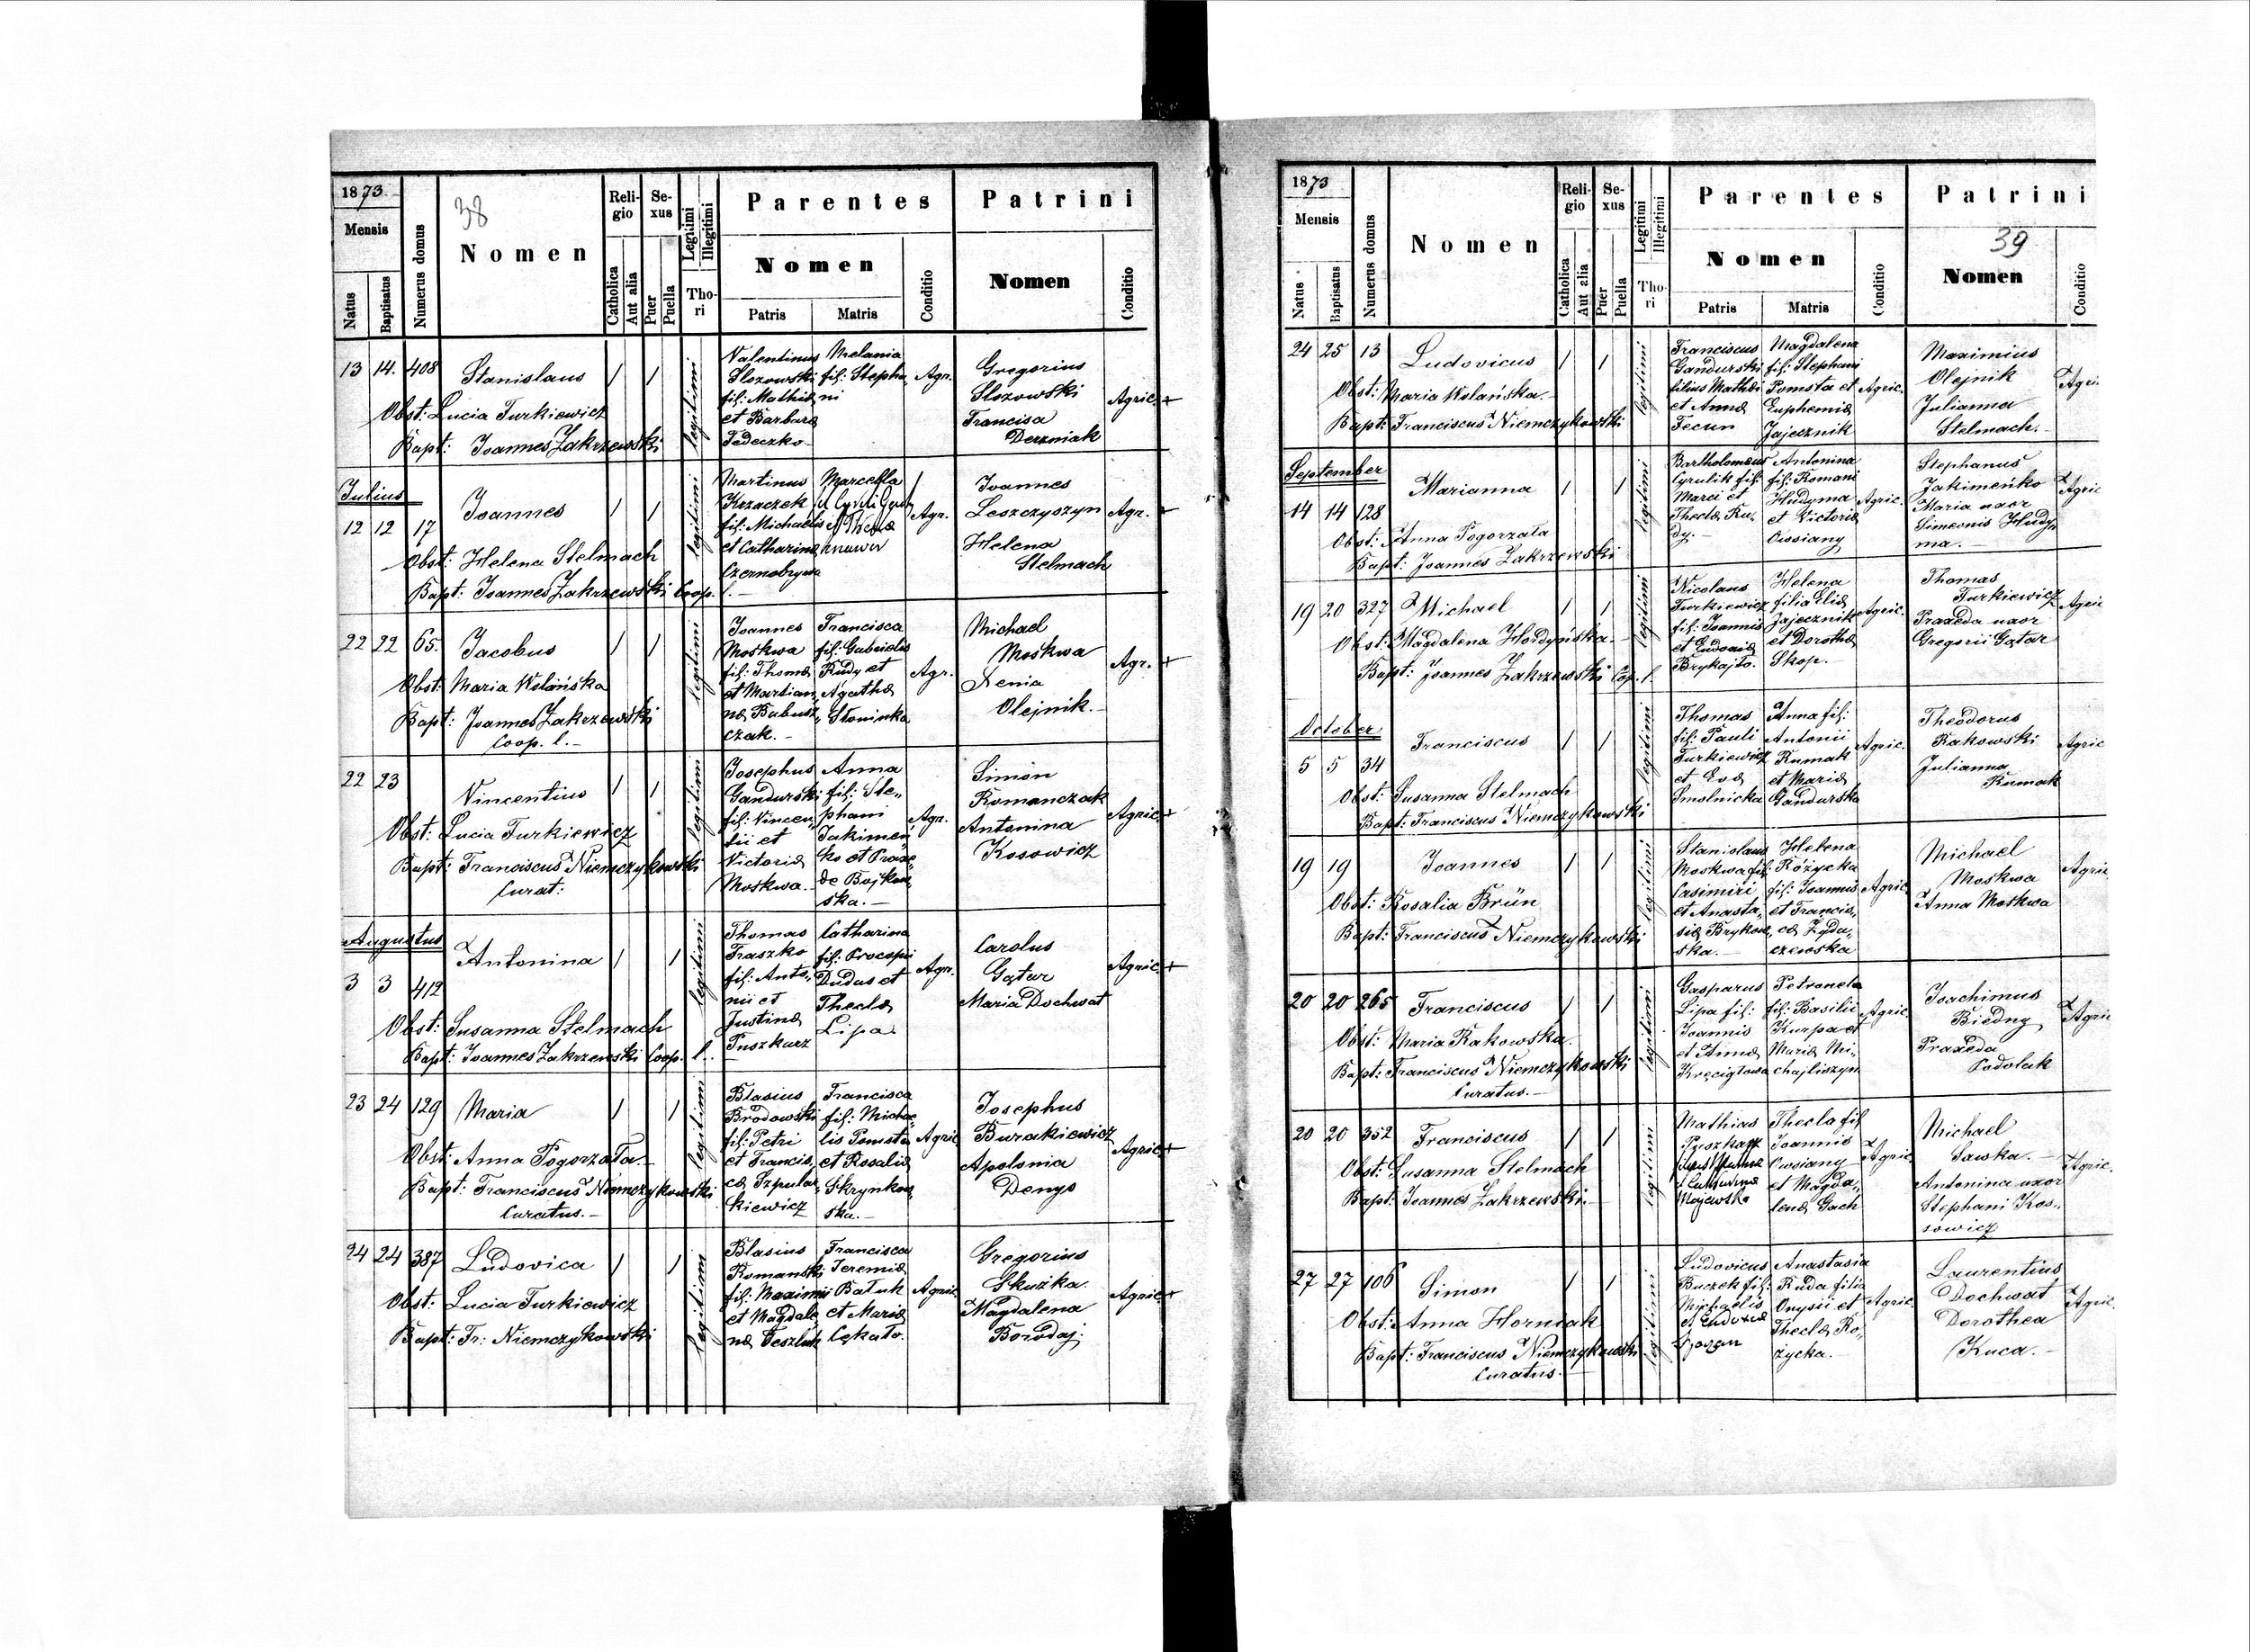 1873
Mensis
Natus
Baptisatus
Numerus domus
38
Nomen
Religio
Catholica
Aut alia
Sexus
Puer
Puella
Legitimi
Illegitimi
Thori
Parentes
Nomen
Patris
Matris
Conditio
Patrini
Nomen
Conditio
13 14. 408 Stanislaus / / legitimi
Obst: Lucia Turkiewicz
Bapt: Joannes Zakrzewski
Valentinus
Slozowski
fil: Mathiæ
et Barbaræ
Fedeczko
Melania
fil: Stepha
ni
Agr.
Gregorius
Slozowski
Francisa
Derzniak
Agric. +
Julius
12 12 17 Joannes / / legitimi
Obst: Helena Stelmach
Bapt: Joannes Zakrzewski Coop. l.-
Martinus
Krzaczek
fil: Michaelis
et Catharinæ
Czernobrywa
Marcella
Agr.
Joannes
Leszczyszyn
Helena
Stelmach
Agr. +
22 22 65. Jacobus / / legitimi
Obst: Maria Wolańska
Bapt: Joannes Zakrzewski
Coop. l.-
Joannes
Moskwa
fil: Thomæ
et Marian„
næ Babusz„
czak.-
Francisca
fil: Gabrielis
Rudy et
Agathæ
Słoninka
Agr.
Michael
Moskwa
Xenia
Olejnik.-
Agr. +
22 23 Vincentius / / legitimi
Obst: Lucia Turkiewicz
Bapt: Franciscus Niemczykowski
Curat:
Josephus
Gandurski
fil: Vincen„
tii et
Victoriæ
Moskwa.-
Anna
fil: Ste„
phani
Jakimen„
ko et Praxe„
de Bojkow„
ska.-
Agr.
Simon
Romanczak
Antonina
Kosowicz
Agric. +
Augustus
3 3 412 Antonina / / legitimi
Obst: Susanna Stelmach
Bapt: Joannes Zakrzewski Coop. l.
Thomas
Fraszko
fil: Anto„
nii et
Justinæ
Puszkarz
Catharina
fil: Procopii
Dudus et
Theclæ
Lipa
Agr.
Carolus
Gątar
Maria Dochwat
Agric. +
23 24 129 Maria / / legitimi
Obst: Anna Pogorzała.
Bapt: Franciscus Niemczykowski
Curatus.-
Blasius
Brodowski
fil: Petri
et Francis„
cæ Szpular„
kiewicz
Francisca
fil: Michae„
lis Pomsta
et Rosaliæ
Skrynkow„
ska.-
Agric
Josephus
Burakiewicz
Apolonia
Denys
Agric +
24 24 387 Ludovica / / legitimi
Obst: Lucia Turkiewicz
Bapt: Fr: Niemczykowski
Blasius
Romanski
fil: Maximii
et Magdale„
næ Teszluk
Francisca
Jeremiæ
Baluk
et Mariæ
Cękało.
Agric.
Gregorius
Skuzka.
Magdalena
Borodaj.
Agric. +
1873
Mensis
Natus
Baptisatus
Numerus domus
Nomen
Religio
Catholica
Aut alia
Sexus
Puer
Puella
Legitimi
Illegitimi
Thori
Parentes
Nomen
Patris
Matris
Conditio
Patrini
39
Nomen
Conditio
24 25 13 Ludovicus / / legitimi
Obst: Maria Wolańska.-
Bapt: Franciscus Niemczykowski
Franciscus
Gandurski
filius Mathæi
et Annæ
Fecun
Magdalena
fil: Stephani
Pomsta et
Euphemiæ
Jajecznik
Agric.
Maximius
Olejnik
Julianna
Stelmach.-
Agric
September
14 14 128 Marianna / / legitimi
Obst: Anna Pogorzała
Bapt: Joannes Zakrzewski
Bartholomæus
Cyrulik fil:
Marci et
Theclæ Ru„
dy.-
Antonina
fil: Romani
Hudyma
et Victoriæ
Owsiany
Agric.
Stephanus
Jakimeńko
Maria uxor
Simeonis Hudy
ma.-
Agric
19 20 327 Michael / / legitimi
Obst: Magdalena Hordyńska.-
Bapt: Joannes Zakrzewski Cop. l.
Nicolaus
Turkiewicz
fil: Joannis
et Eudoxiæ
Brykajło.
Helena
filia Eliæ
Jajecznik
et Dorotheæ
Skop.-
Agric.
Thomas
Turkiewicz
Praxeda uxor
Gregorii Gątar
Agric
October
5 5 34 Franciscus / / legitimi
Obst: Susanna Stelmach
Bapt: Franciscus Niemczykowski
Thomas
fil: Pauli
Turkiewicz
et Evæ
Smolnicka
Anna fil:
Antonii
Kumak
et Mariæ
Gandurska
Agric.
Theodorus
Rakowski
Julianna
Kumak
Agric
19 19 Joannes / / legitimi
Obst: Rosalia Brün
Bapt: Franciscus Niemczykowski
Stanislaus
Moskwa fil:
Casimiri
et Anasta„
siæ Brykow„
ska.-
Helena
Różycka
fil: Joannis
et Francis„
cæ Żyda„
czewska
Agric.
Michael
Moskwa
Anna Moskwa
Agric
20 20 265 Franciscus / / legitimi
Obst: Maria Rakowska.
Bapt: Franciscus Niemczykowski
Curatus.-
Gasparus
Lipa fil:
Joannis
et Annæ
Kręcigłowa
Petronela
fil: Basilii
Kurpa et
Mariæ Mi„
chajliszyn
Agric.
Joachimus
Biedny
Praxeda
Podolak
Agric
20 20 352 Franciscus / / legitimi
Obst: Susanna Stelmach
Bapt: Joannes Zakrzewski.
Mathias
Majewska
Thecla fil
Joannis
Owsiany
et Magda„
lenæ Gach
Agric.
Michael
Sawka.-
Antonina uxor
Stephani Kos„
sowicz
Agric.
27 27 106 Simon / / legitimi
Obst: Anna Horniak
Bapt: Franciscus Niemczykowski
Curatus.-
Ludovicus
Buczek fil:
Michaelis
et Eudoxiæ
Anastasia
Ruda filia
Onysii et
Theclæ Ro„
życka.-
Agric.
Laurentius
Dochwat
Dorothea
Kuca.-
Agric.